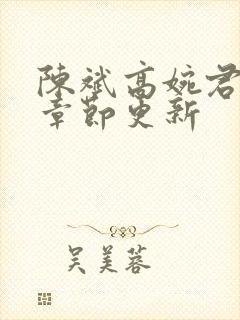 陳斌高婉君
章節更新
吴美蓉